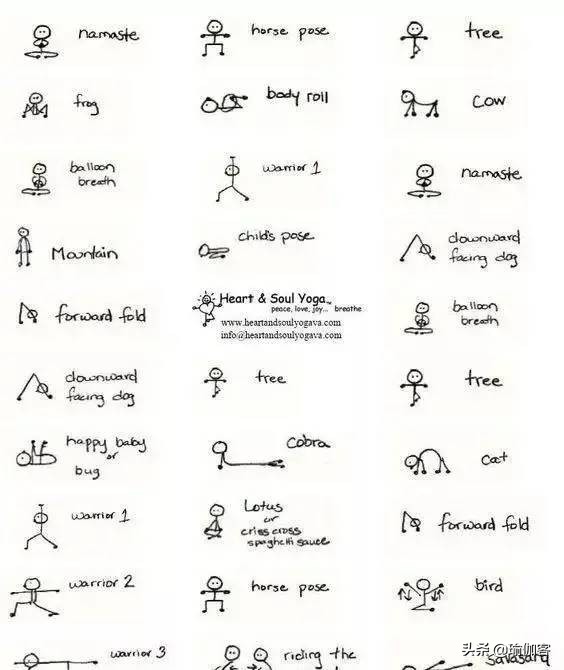 namaste
horse pose
tree
frog
body roll
cow
balloon
breath
warrior 1
namaste
Mountain
child's pose
downward
facing dog
forward fold
Heart & Soul Yoga
peace, love, joy... breathe
www.heartandsoulyogava.com
info@heartandsoulyogava.com
balloon
breath
downward
facing dog
tree
tree
happy baby
or
bug
cobra
cat
warrior 1
Lotus
or
criss cross
spaghetti sauce
forward fold
warrior 2
horse pose
bird
warrior 3
riding the
savasana
头条@瑜伽客